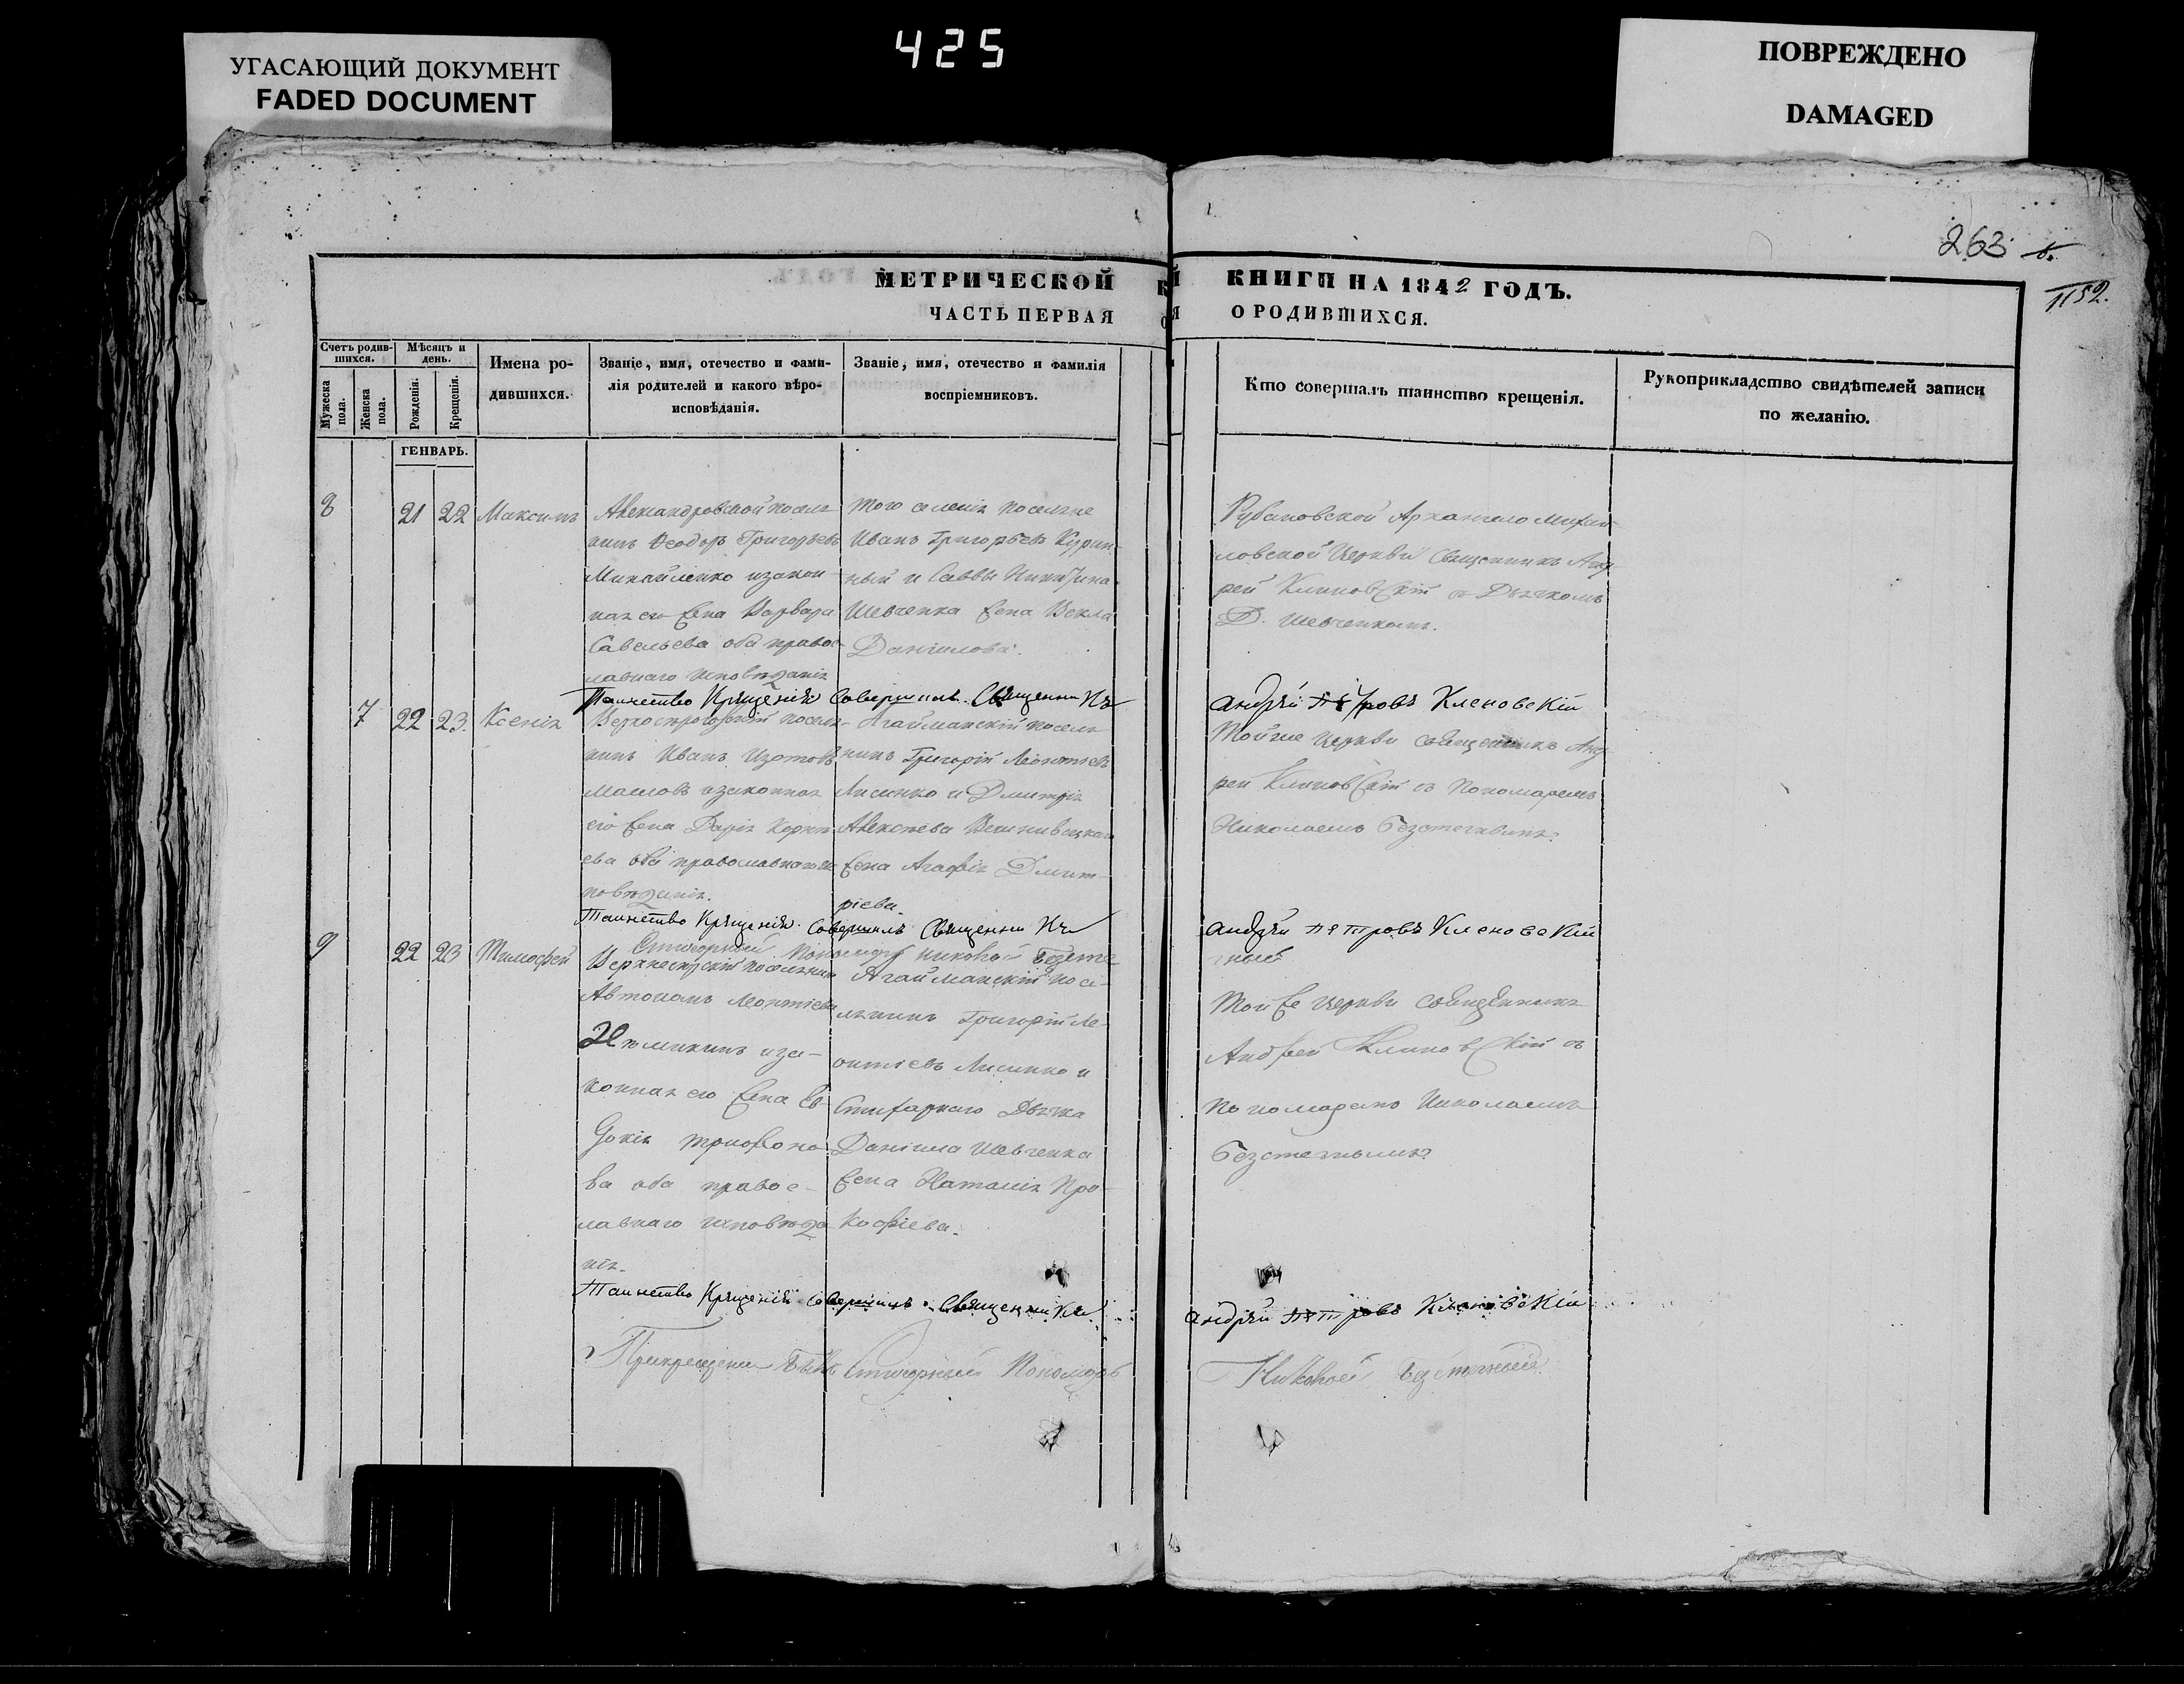 УГАСАЮЩИЙ ДОКУМЕНТ
FADED DOCUMENT
425
ПОВРЕЖДЕНО
DAMAGED
263
1152.
МЕТРИЧЕСКОЙ КНИГИ НА 1842 ГОДЪ.
ЧАСТЬ ПЕРВАЯ О РОДИВШИХСЯ.
Счетъ родив-
шихся.
Мужеска пола.
Женска пола.
Мѣсяцъ и
день.
Рожденія.
Крещенія.
Имена ро-
дившихся.
Званіе, имя, отечество и фами-
лія родителей и какого вѣро-
исповѣданія.
Званіе, имя, отечество и фамилія
воспріемниковъ.
Кто совершалъ таинство крещенія.
Рукоприкладство свидѣтелей записи
по желанію.
ГЕНВАРЬ.
8 21 22 Максимъ
Александровской посел-
нинъ Ѳеодоръ Григорьевъ
Михайленко и закон-
ная его жена Варвара
Савельева оба правос-
лавнаго исповѣданія
того селенія
Иванъ Григорьевъ
ный и Саввы Никитина
Шевченка жена Векла
Даніилова.
Рубановской Архангело Михай-
ловской церкви священникъ Анд-
рей Клиновскій съ Дьячкомъ
Д. Шевченкомъ.
Таинство Крещенія Совершилъ Священникъ Андрей Петровъ Кленовскій
7 22 23. Ксенія
нинъ Иванъ Изотовъ
Масловъ и законная
его жена Дарія
ева оба православнаго ис-
повѣданія.
Агайманскій поселя-
нинъ Григорій Леонтьевъ
Лисенко и Дмитрія
Алексѣева
жена Агафія Дмит-
ріева.
Тойже церкви священникъ Анд-
рей Клиновскій съ Пономаремъ
Николаемъ Безстечнымъ.
Таинство Крещенія Совершилъ Священникъ Андрей Петровъ Кленовскій
Стихарный Пономарь Николай Безсте
чный
9 22 23 Тимофей
поселянинъ
Автономъ Леонтіевъ
и за-
конная его жена Ев-
докія Трифоно-
ва оба правос-
лавнаго исповѣда
нія.
Агайманскій посе-
лянинъ Григорій Ле-
онтіевъ Лисенко и
Стихарнаго Дьячка
Даніила Шевченка
жена Наталія Про-
кофіева.
Тойже церкви священникъ
Андрей Клиновскій съ
пономаремъ Николаемъ
Безстечнымъ.
Таинство Крещенія совершилъ Священникъ Андрей Петровъ Кленовскій
При крещеніи былъ Стихарный Пономарь Николай Безстечный